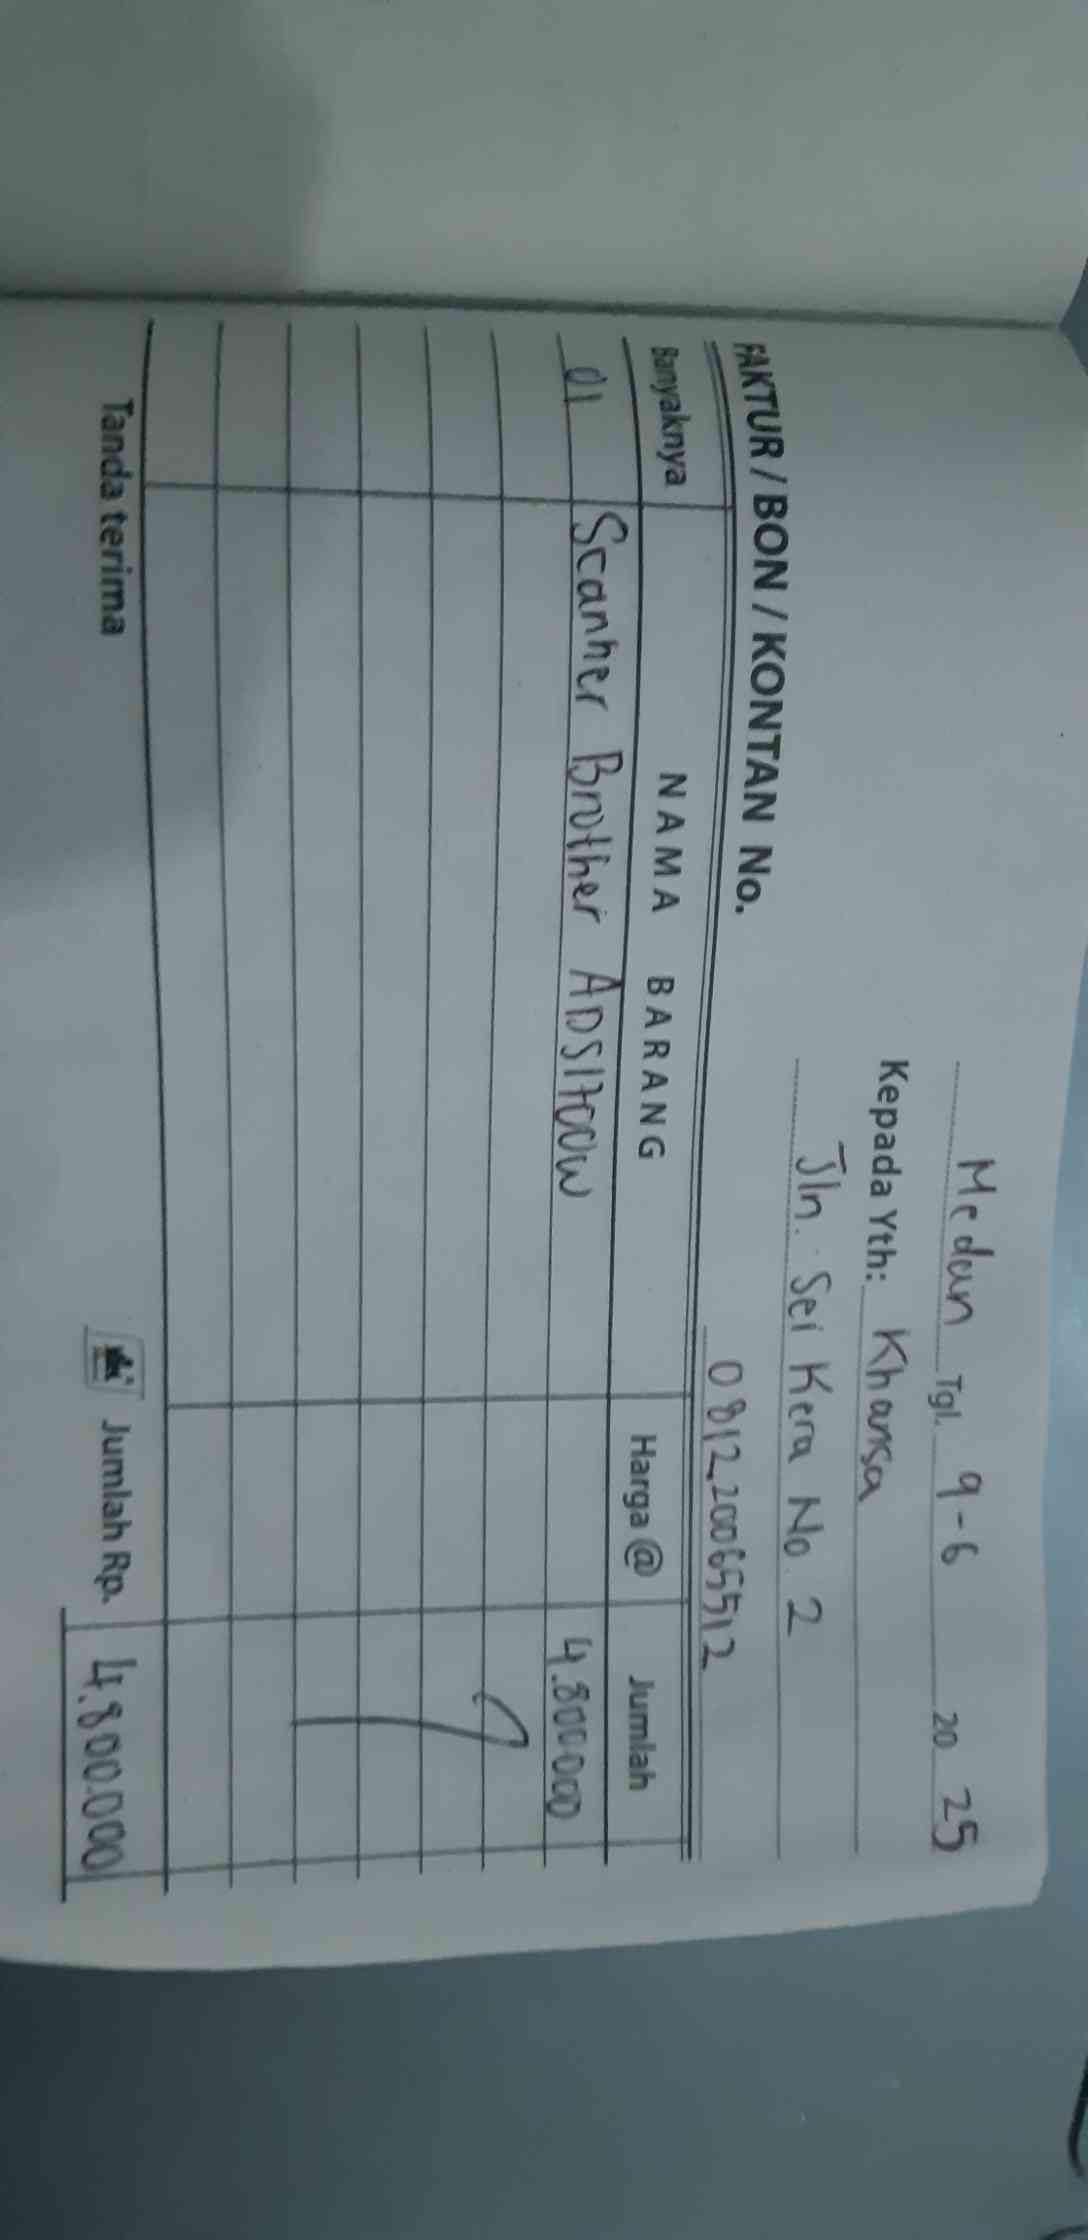 Medan Tgl. 9-6 20 25
Kepada Yth: Khansa
Jln. Sei Kera No. 2
081220065512
FAKTUR / BON / KONTAN No.
Banyaknya NAMA BARANG Harga @ Jumlah
01 Scanner Brother ADS1700W 4.800000
Tanda terima Jumlah Rp. 4.800.000